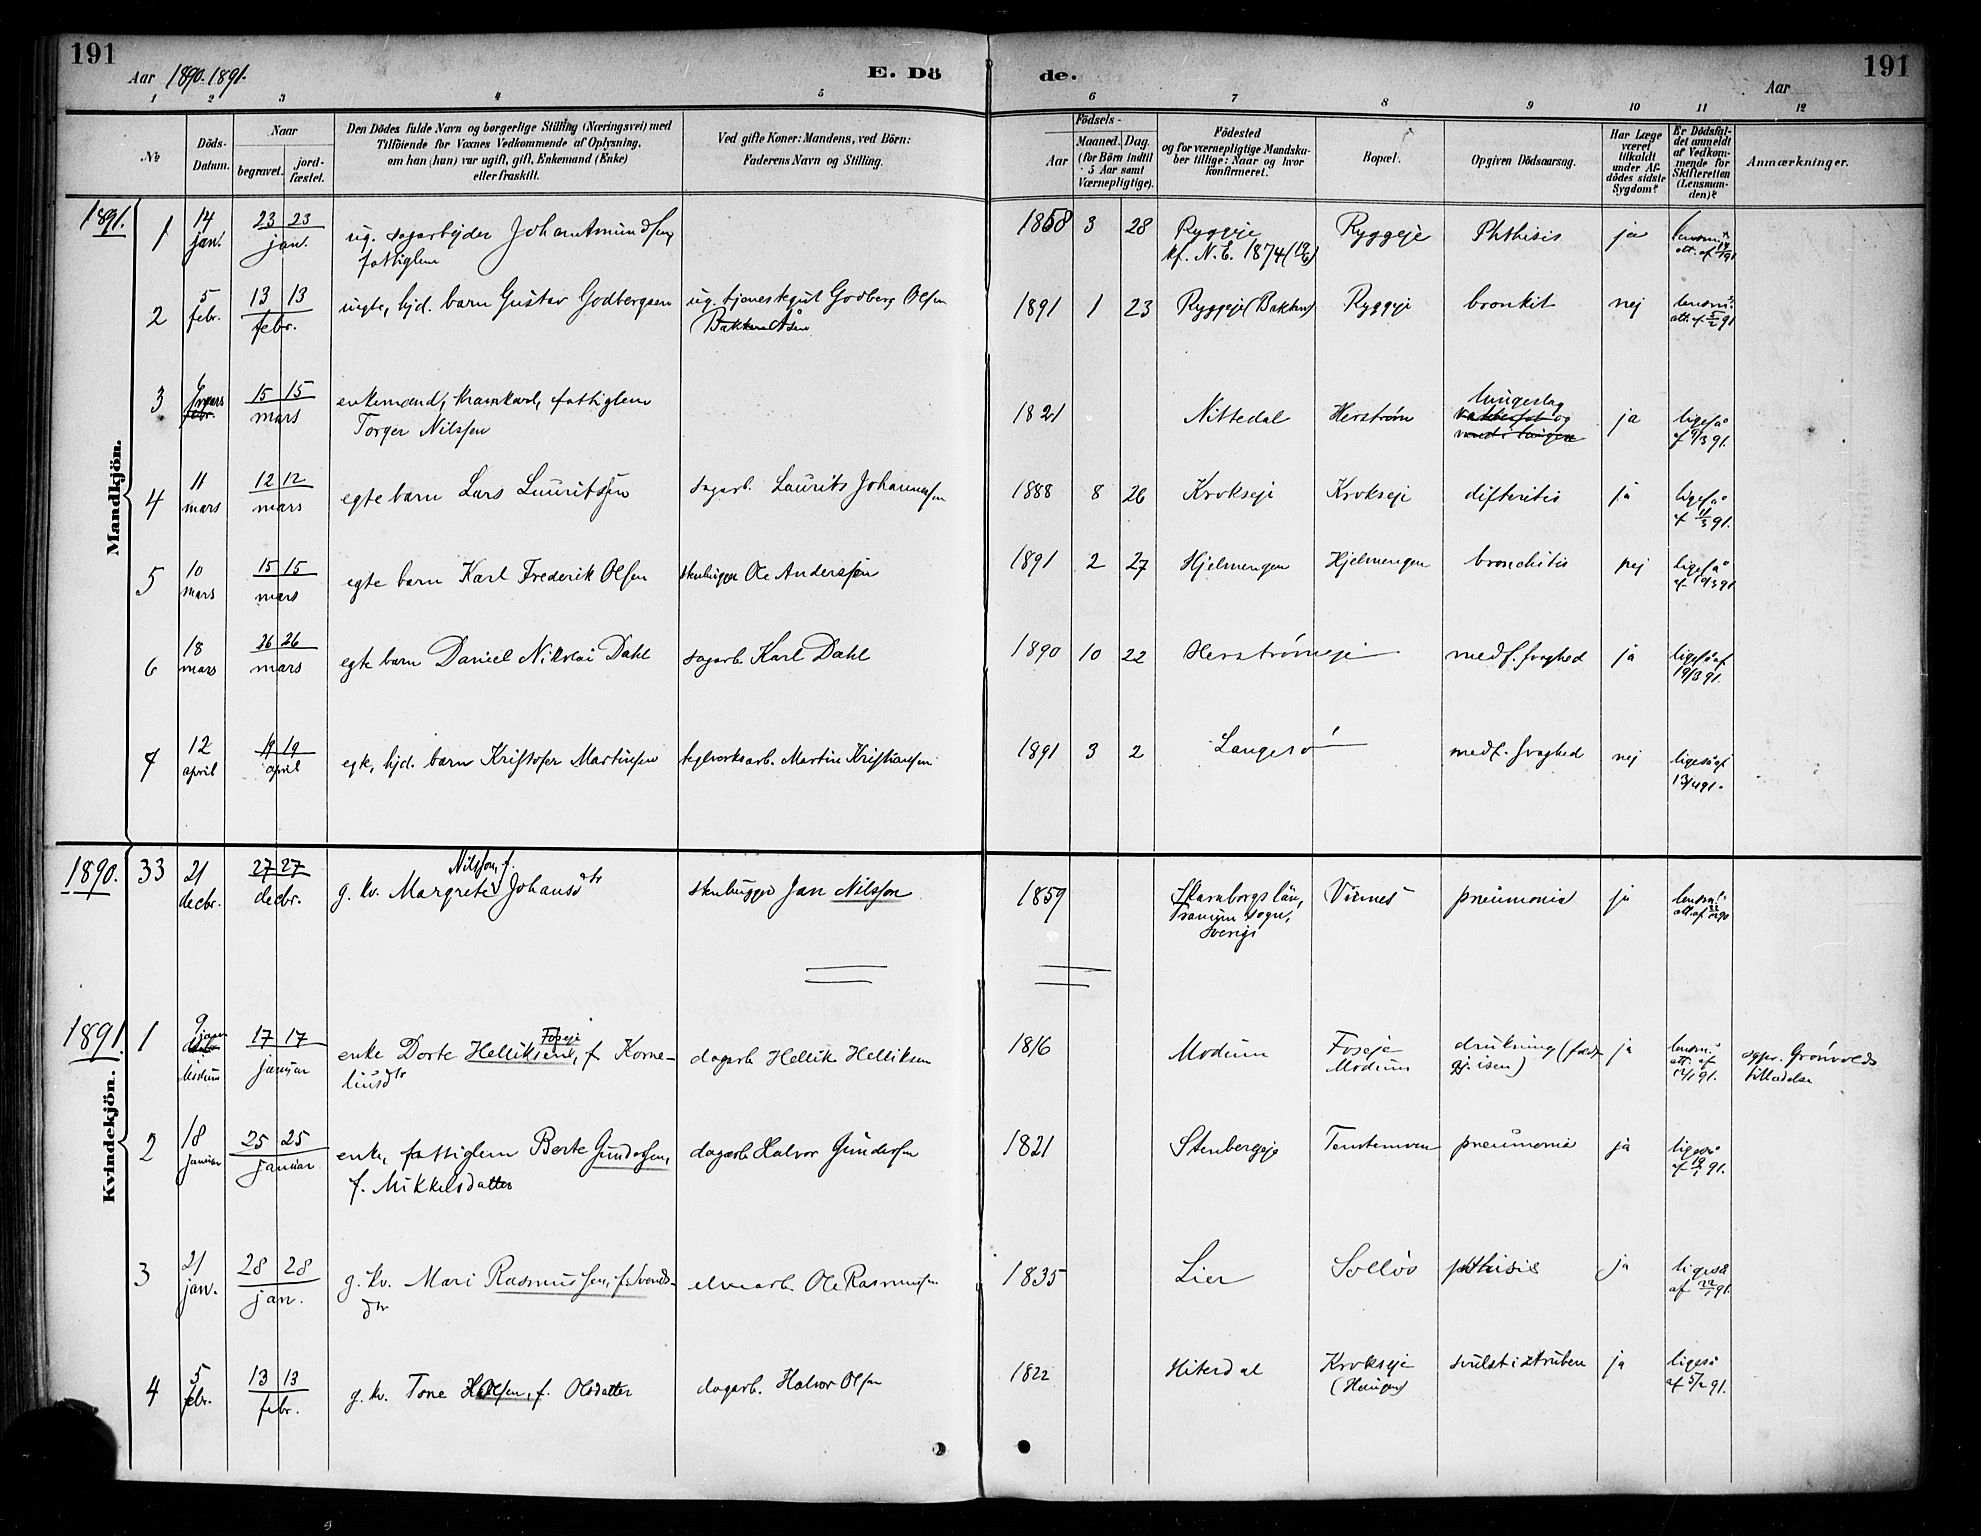 191
Aar 1890. 1891.
E. Dö
de.
Aar
191
1 2 3 4 5 6 7 8 9 10 11 12
No
Döds-
Datum.
Naar
begravet.
jord-
fæstet.
Den Dödes fulde Navn og borgerlige Stilling (Næringsvei) med
Tilföiende for Voxnes Vedkommende af Oplysning,
om han (hun) var ugift, gift, Enkemand (Enke)
eller fraskilt.
Ved gifte Koner: Mandens, ved Börn:
Faderens Navn og Stilling.
Födsels-
Aar
Maaned.
Dag.
(for Börn indtil
5 Aar samt
Værnepligtige).
Födested
og for værnepligtige Mandsku-
ber tillige: Naar og hvor
konfirmeret.
Bopæl.
Opgiven Dödsaarsag.
Har Læge
været
tilkaldt
under Af-
dödes sidste
Sygdom?
Er Dödsfal-
det anmeldt
af Vedkom-
mende for
Skifteretten
(Lensman-
den)?
Anmærkninger.
Mandkjön.
1891.
1 14 jan. 23 23 jan. ug. sagarbejder Johan Amundsen, 1858 3 28 Ryggeje Ryggeje Phthisis ja
fattiglem kf. N.E. 1874
2 5 febr. 13 13 febr. uegte, hjd. barn Gustav Godbergsen ug. tjenestegut Godberg Olsen 1891 1 23 Ryggeje (Bakken) Ryggeje bronkit nej lensm. att. af 5/2 91
3 mars 15 15 mars enkemand, kramkarl, fattiglem 1821 Nittedal Herstrøm lungeslag ja ligeså af 9/3 91.
Torger Nilssen
4 11 mars 12 12 mars egte barn Lars Lauritssen sagarb. Laurits Johannessen 1888 8 26 Krokseje Krokseje difteritis ja ligeså af 11/3 91.
5 10 mars 15 15 mars egte barn Karl Frederik Olsen stenhugger Ole Anderssen 1891 2 27 Hjelmengen Hjelmengen bronchitis nej ligeså af 10/3 91
6 18 mars 26 26 mars egte barn Daniel Nikolai Dahl sagarb. Karl Dahl 1890 10 22 Herstrømseje medf. svaghed ja ligeså af 19/3 91.
7 12 april 19 19 april egte, hjd. barn Kristofer Martinsen teglverksarb. Martin Kristiansen 1891 3 2 Langesø medf. svaghed nej ligeså af 13/4 91.
Kvindekjön.
1890. 33 21 decbr. 27 27 decbr. g. kv. Margrete Nilsson, f. Johansdtr stenhugger Jan Nilsson 1859 Skaraborgs län, Vivnes pneumonia ja
sogn,
Sverige
1891. 1 9 januar Modum 17 17 januar enke Dorte Helliksen, Foseje f. Korne- dagarb. Hellik Helliksen 1816 Modum Foseje Modum drukning (faldt gj. isen) ja lensm. att. af 12/1 91. Grønvolds tilladelse
liusdtr
2 18 januar 25 25 januar enke, fattiglem Berte Gundersen, dagarb. Halvor Gundersen 1821 Stenbergseje pneumonia ja ligeså af 19/1 91.
f. Mikkelsdatter
3 21 jan. 28 28 jan. g. kv. Mari Rasmussen, f. Svends- elvearb. Ole Rasmussen 1835 Lier Solløs phthisis ja ligeså af 22/1 91.
dtr
4 5 febr. 13 13 febr. g. kv. Tone Olsen, f. Olsdatter dagarb. Halvor Olsen 1822 Hiterdal Krokseje (Haugen) svulst i struben ja ligeså af 5/2 91.